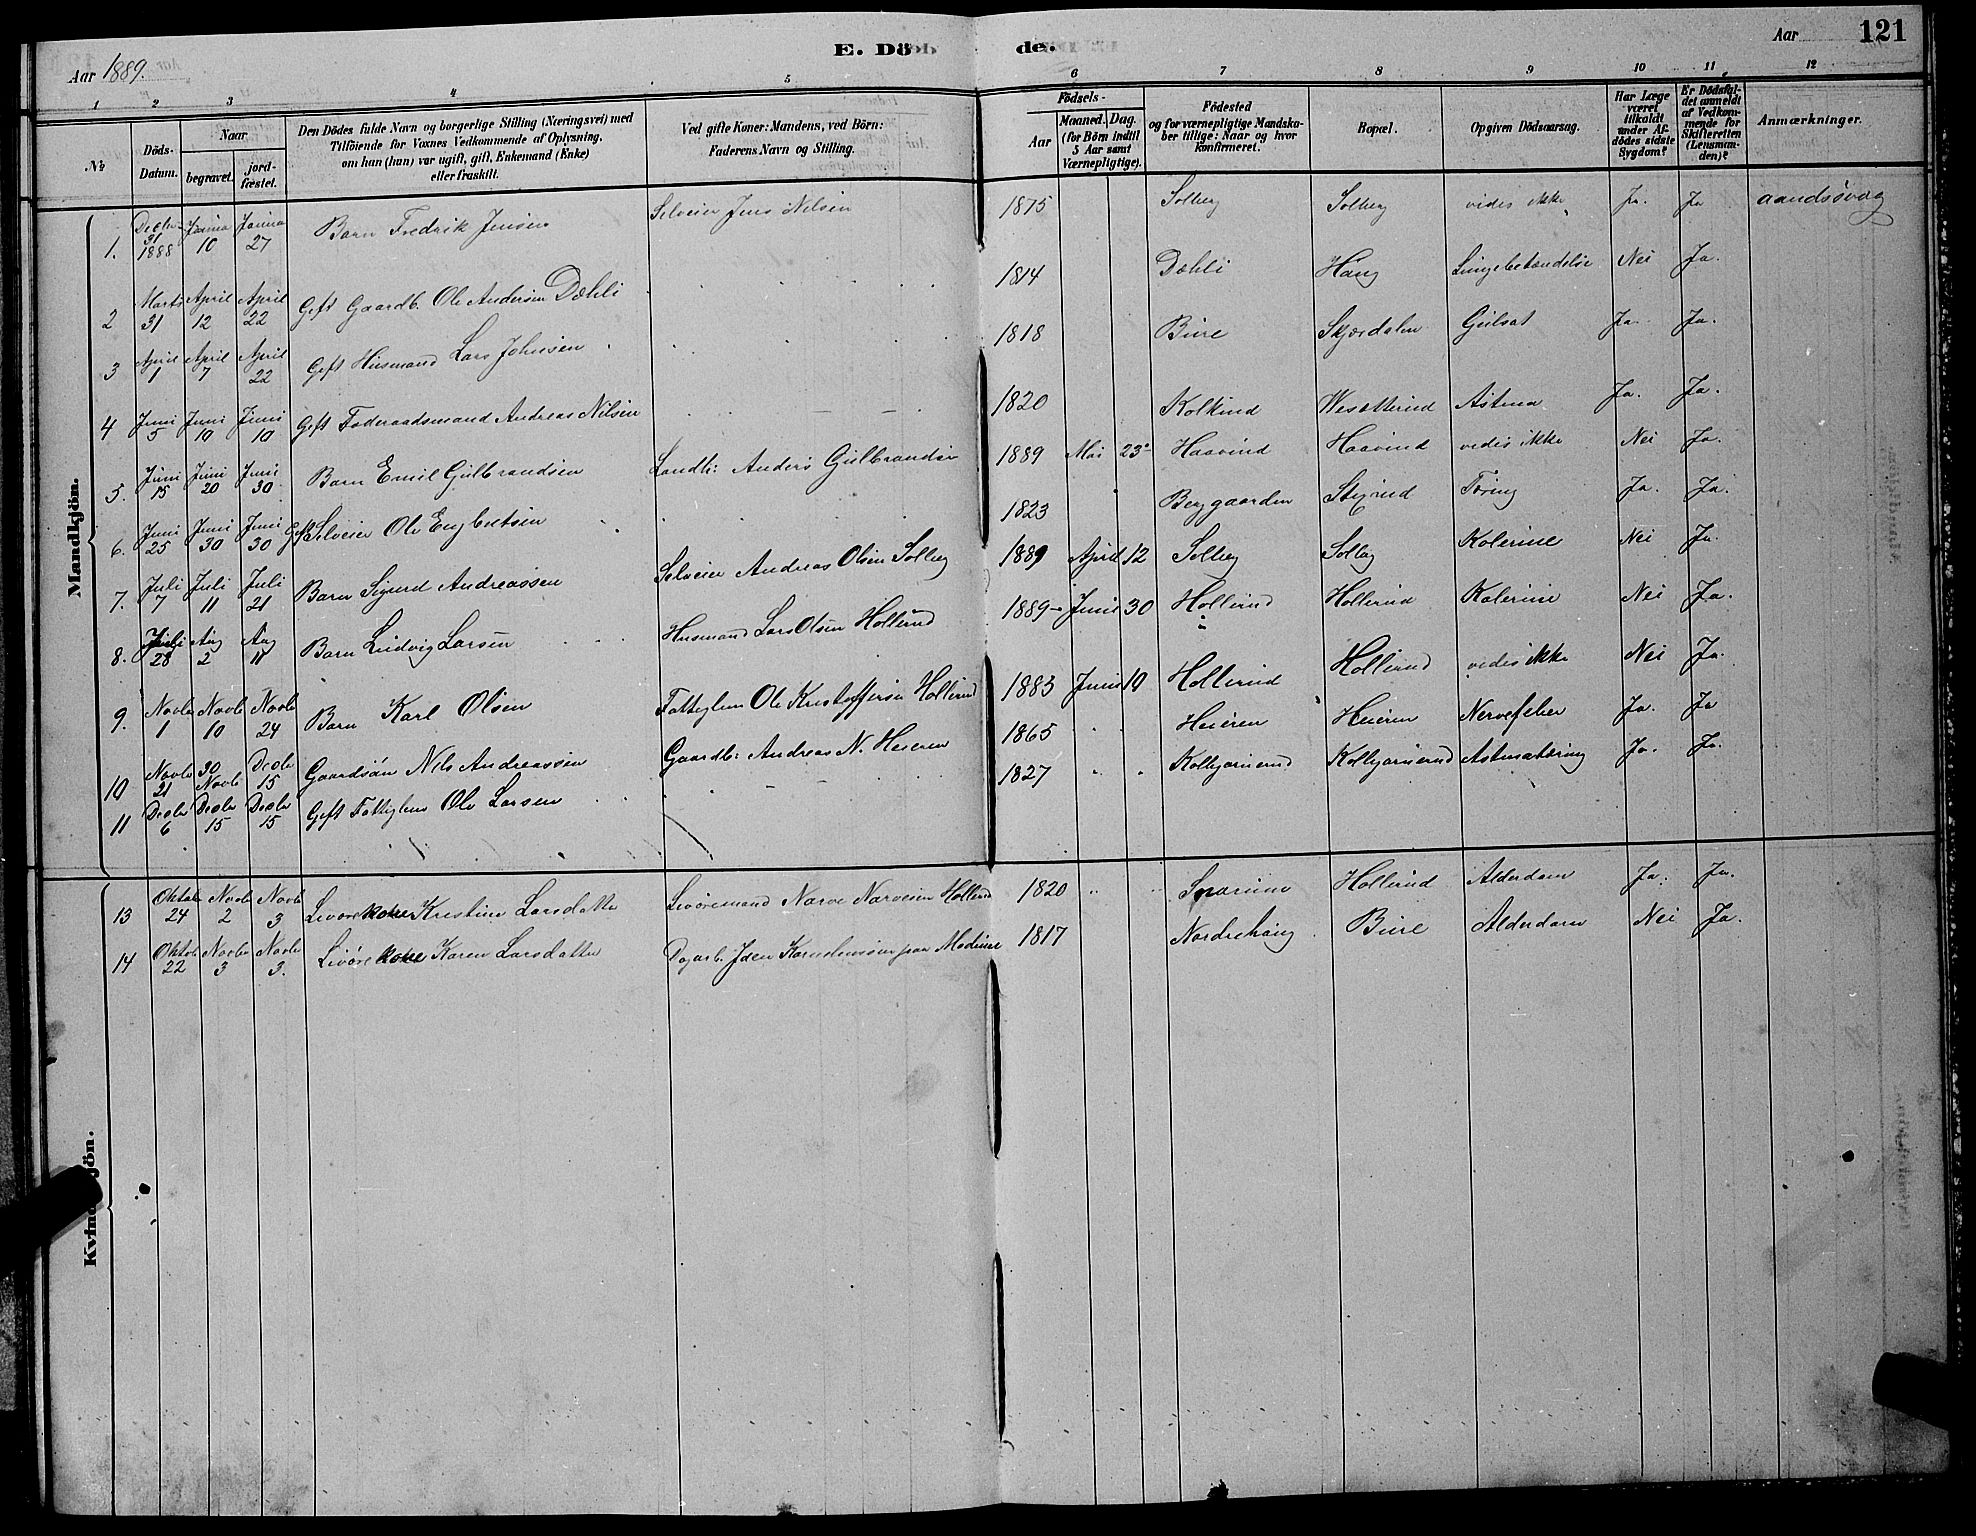 E. Döde.
Aar 121
Aar 1889.
1 2 3 4 5 6 7 8 9 10 11 12
№
Döds-Datum.
Naar
begravet.
jord-fæstet.
Den Dödes fulde Navn og borgerlige Stilling (Næringsvei) med
Tilföiende for Voxnes Vedkommende af Oplysning.
om han (hun) var ugift, gift, Enkemand (Enke)
eller fraskilt.
Ved gifte Koner: Mandens, ved Börn:
Faderens Navn og Stilling.
Födsels-
Aar
Maaned. Dag.
(for Börn indtil
5 Aar samt
Værnepligtige).
Födested
og for værnepligtige Mandska-
ber tillige: Naar og hvor
konfirmeret.
Bopæl.
Opgiven Dödsaarsag.
Har Læge
været
tilkaldt
under Af-
dödes sidste
Sygdom?
Er Dödsfal-
det anmeldt
af Vedkom-
mende for
Skifteretten
(Lensman-
den)?
Anmærkninger.
Mandkjön.
1. Decbr 31 1888 Janua 10 Janua 27 Barn Fredrik Jensen Selveier Jens Nilsen 1875 Solberg Solberg vides ikke Ja. Ja aandssvag
2 Marts 31 April 12 April 22 Gift Gaardb. Ole Andersen Dæhli 1814 Dæhli Haug Lungebetændelse Nei Ja.
3 April 1 April 7 April 22 Gift Husmand Lars Johnsen 1818 Bure Skjærdalen Gulsot Ja. Ja.
4 Juni 5 Juni 10 Juni 10 Gift Föderaadsmand Andreas Nilsen 1820 Kolkind Wesætterud Astma Ja. Ja.
5. Juni 15 Juni 20 Juni 30 Barn Emil Gulbrandsen Landh: Anders Gulbrandsen 1889 Mai 23 Haavind Haavind vedes ikke Nei Ja.
6. Juni 25 Juni 30 Juni 30 Gift Selveier Ole Engbretsen 1823 Berggaarden Stigrud Tæring Ja. Ja.
7. Juli 7 Juli 11 Juli 21 Barn Sigurd Andreassen Selveier Andreas Olsen Solberg 1889 April 12 Solberg Solbg Kolerine Nei Ja.
8. Juli 28 Aug 2 Aug 11 Barn Ludvig Larsen Husmand Lars Olsen Hollerud 1889 Juni 30 Hollerud Hollerud Kolerine Nei Ja.
9. Novbr 1 Novbr 10 Novbr 24 Barn Karl Olsen Fattiglem Ole Kristoffersen Hollerud 1883 Juni 19 Hollerud Hollerud vedes ikke Nei Ja.
10 Novbr 21 30 Novbr Decbr 15 Gaardsön Nils Andreassen Gaardb: Andreas N. Heieren 1865 Heieren Heieren Nervefeber Ja. Ja
11 Decbr 6 Decbr 15 Decbr 15 Gift Fattiglem Ole Larsen 1827 Kolbjørnrud Kolbjørnrud Astmatæring Ja. Ja.
Kvindekjön.
13 Oktob 24 Novbr 2 Novbr 3 Livörekone Kristine Larsdatter Livöremand Narve Narvesen Hollerud 1820 Hollerud Alderdom Ja. Ja.
14 Oktob 22 Novbr 3 Novbr 3. Livörekone Karen Larsdatter Dagarb. Iden paa Modum 1817 Nordrehaug Bure Alderdom Nei Ja.